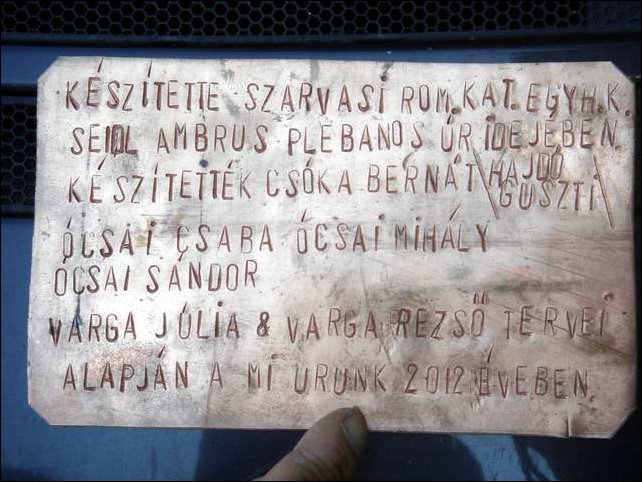 KÉSZÍTETTE SZARVASI ROM. KAT. EGYH. K.
SEIDL AMBRUS PLEBANOS ÚR IDEJÉBEN
KÉSZÍTETTÉK CSÓKA BÉRNÁT \HAJDÓ GUSZTI\
ÓCSAI CSABA ÓCSAI MIHÁLY
OCSAI SÁNDOR
VARGA JÚLIA & VARGA REZSŐ TERVEI
ALAPJÁN A MI URUNK 2012 ÉVEBEN.